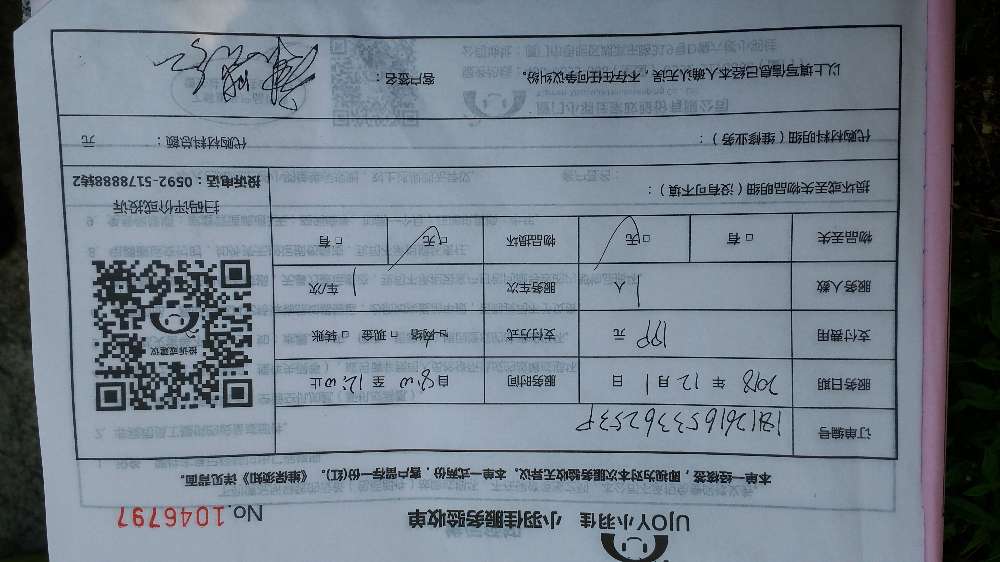 UJOY小羽佳 小羽佳服务验收单
No.1046797
本单一经核签，即视为对本次服务验收无异议。本单一式两份，客户留存一份(红)。《维保须知》详见背面。
订单编号
服务日期 2018 年 12 月 1 日 服务时间 自 8:00 至 12:00 止
支付费用 199 元 支付方式 □网络 □现金 □转账
服务人数 1 人 服务车次 1 车/次
物品丢失 □有 □无 物品损坏 □无 □有
损坏或丢失物品明细（没有可不填）：
投诉或建议
扫码评价或投诉
投诉电话：0592-5178888转2
代购材料明细（维修业务）： 代购材料总额： 元
以上填写信息已经本人确认无误，不存在任何争议纠纷。 客户签名：